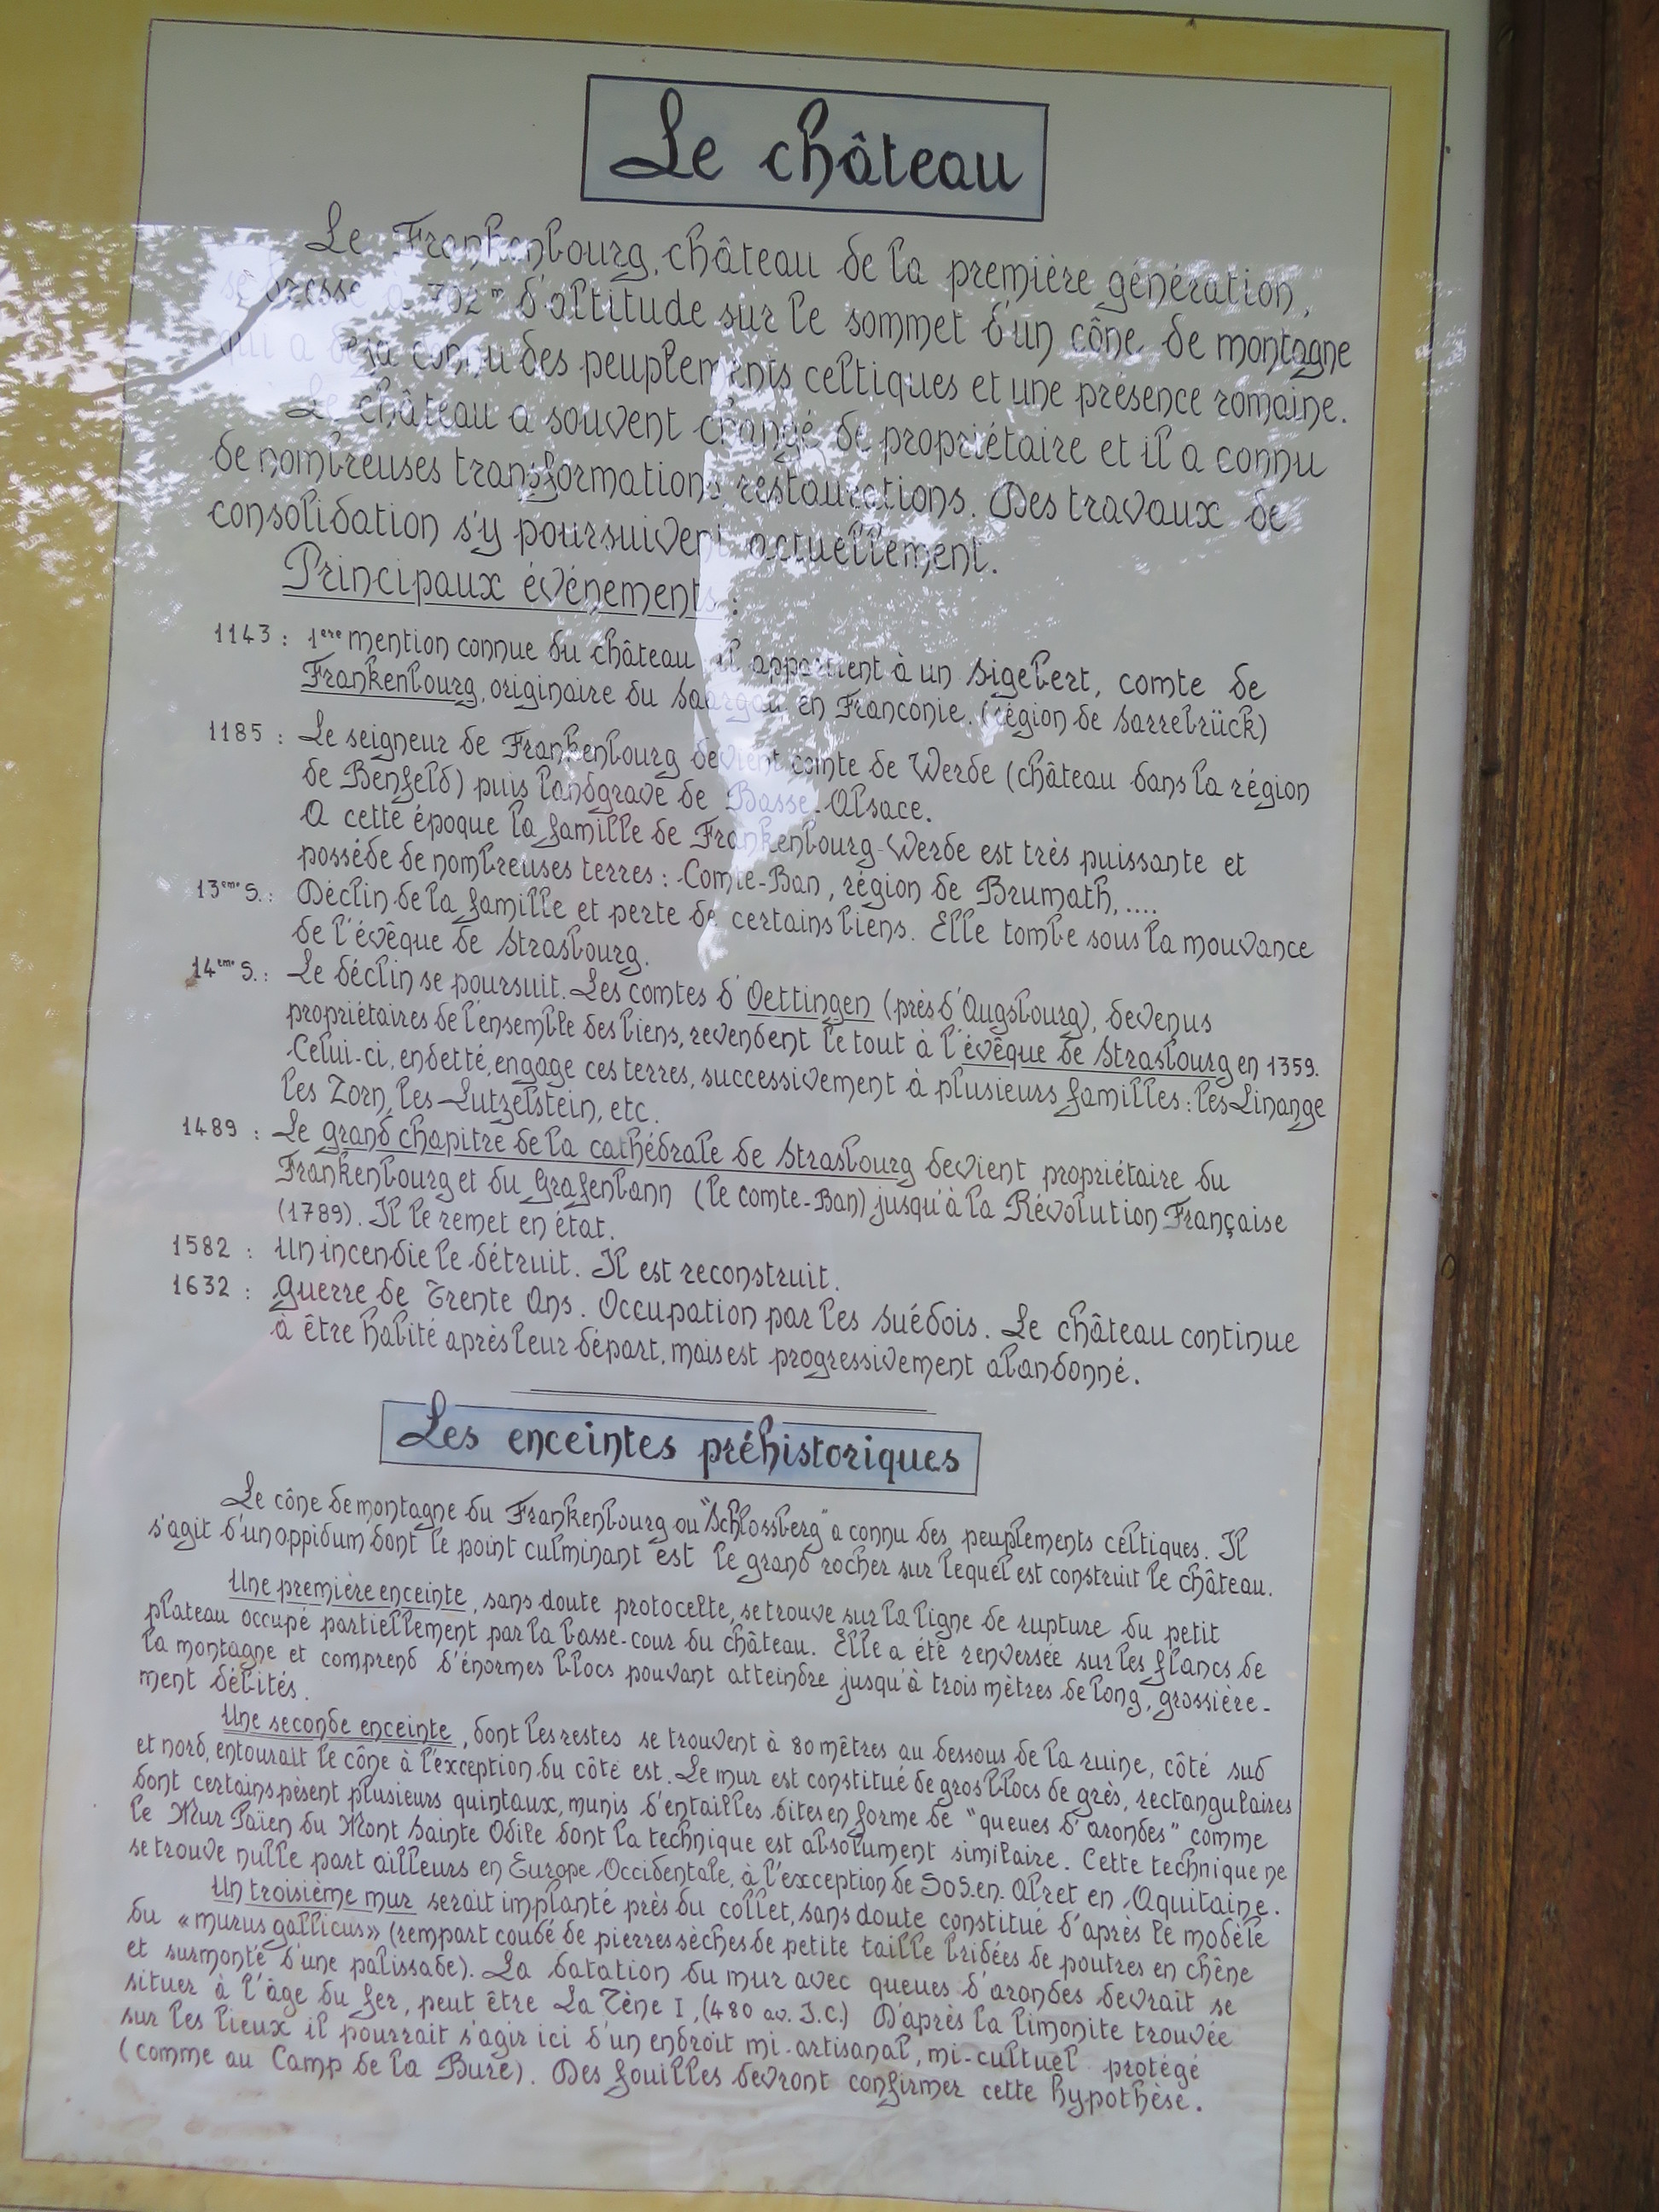 Le château
Le Frankenbourg, château de la première génération,
se dresse à 702 m d'altitude sur le sommet d'un cône de montagne
qui a déjà connu des peuplements celtiques et une présence romaine.
Le château a souvent changé de propriétaire et il a connu
de nombreuses transformations, restaurations. Des travaux de
consolidation s'y poursuivent actuellement.
Principaux événements :
1143 : 1ère mention connue du château il appartient à un Sigebert, comte de
Frankenbourg, originaire du Saargau en Franconie. (région de Sarrebrück)
1185 : Le seigneur de Frankenbourg devient comte de Werde (château dans la région
de Benfeld) puis landgrave de Basse-Alsace.
A cette époque la famille de Frankenbourg-Werde est très puissante et
possède de nombreuses terres : Comte-Ban, région de Brumath, ....
13ème S. : Déclin de la famille et perte de certains biens. Elle tombe sous la mouvance
de l'évêque de Strasbourg.
14ème S. : Le déclin se poursuit. Les comtes d'Oettingen (près d'Augsbourg), devenus
propriétaires de l'ensemble des biens, revendent le tout à l'évêque de Strasbourg en 1359.
Celui-ci, endetté, engage ces terres, successivement à plusieurs familles : les Linange
les Zorn, les Lutzelstein, etc.
1489 : Le grand chapitre de la cathédrale de Strasbourg devient propriétaire du
Frankenbourg et du Grafenbann (le comte-Ban) jusqu'à la Révolution Française
(1789). Il le remet en état.
1582 : Un incendie le détruit. Il est reconstruit.
1632 : Guerre de Trente Ans. Occupation par les Suédois. Le château continue
à être habité après leur départ, mais est progressivement abandonné.
Les enceintes préhistoriques
Le cône de montagne du Frankenbourg ou "Schlossberg" a connu des peuplements celtiques. Il
s'agit d'un oppidum dont le point culminant est le grand rocher sur lequel est construit le château.
Une première enceinte, sans doute protocelte, se trouve sur la ligne de rupture du petit
plateau occupé partiellement par la basse-cour du château. Elle a été renversée sur les flancs de
la montagne et comprend d'énormes blocs pouvant atteindre jusqu'à trois mètres de long, grossière-
ment débités.
Une seconde enceinte, dont les restes se trouvent à 80 mètres au dessous de la ruine, côté sud
et nord, entourait le cône à l'exception du côté est. Le mur est constitué de gros blocs de grès, rectangulaires
dont certains pèsent plusieurs quintaux, munis d'entailles dites en forme de "queues d'arondes" comme
le Mur Païen du Mont Sainte Odile dont la technique est absolument similaire. Cette technique ne
se trouve nulle part ailleurs en Europe Occidentale, à l'exception de Sos-en-Albret en Aquitaine.
Un troisième mur serait implanté près du collet, sans doute constitué d'après le modèle
du «murus gallicus» (rempart coudé de pierres sèches de petite taille bridées de poutres en chêne
et surmonté d'une palissade). La datation du mur avec queues d'arondes devrait se
situer à l'âge du fer, peut être La Tène I, (480 av. J.C.) D'après la limonite trouvée
sur les lieux il pourrait s'agir ici d'un endroit mi-artisanal, mi-cultuel protégé
(comme au Camp de la Bure). Des fouilles devront confirmer cette hypothèse.